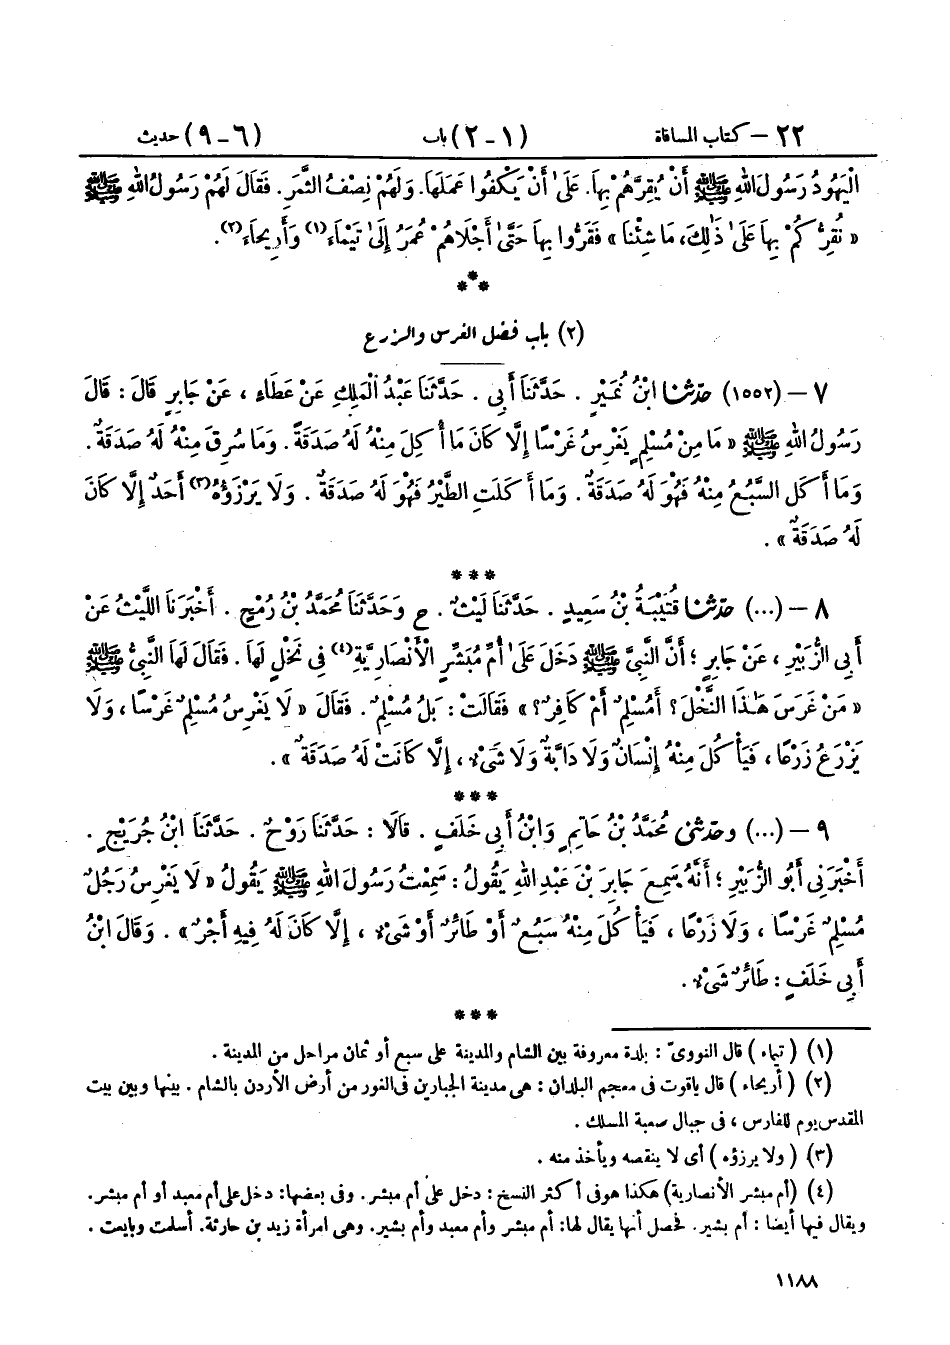 ٢٢ – كتاب المساقاة (١ - ٢) باب (٦ - ٩) حديث
الْيَهُودُ رَسُولَ اللهِ ﷺ أَنْ يُقِرَّهُمْ بِهَا. عَلَىٰ أَنْ يَكْفُوا عَمَلَهَا. وَلَهُمْ نِصْفُ الثَّمَرِ. فَقَالَ لَهُمْ رَسُولُ اللهِ ﷺ
« نُقِرُّكُمْ بِهَا عَلَىٰ ذَٰلِكَ، مَا شِئْنَا » فَقَرُّوا بِهَا حَتَّىٰ أَجْلَاهُمْ عُمَرُ إِلَىٰ تَيْمَاءَ(١) وَأَرِيحَاءَ(٢).
***
(٢) باب فضل الغرس والزرع
٧ – (١٥٥٢) حدّثنا ابْنُ نُمَيْرٍ . حَدَّثَنَا أَبِي . حَدَّثَنَا عَبْدُ الْمَلِكِ عَنْ عَطَاءٍ ، عَنْ جَابِرٍ قَالَ : قَالَ
رَسُولُ اللهِ ﷺ « مَا مِنْ مُسْلِمٍ يَغْرِسُ غَرْسًا إِلَّا كَانَ مَا أُكِلَ مِنْهُ لَهُ صَدَقَةً . وَمَا سُرِقَ مِنْهُ لَهُ صَدَقَةٌ .
وَمَا أَكَلَ السَّبُعُ مِنْهُ فَهُوَ لَهُ صَدَقَةٌ . وَمَا أَكَلَتِ الطَّيْرُ فَهُوَ لَهُ صَدَقَةٌ . وَلَا يَرْزَؤُهُ(٣) أَحَدٌ إِلَّا كَانَ
لَهُ صَدَقَةٌ » .
***
٨ – (...) حدّثنا قُتَيْبَةُ بْنُ سَعِيدٍ . حَدَّثَنَا لَيْثٌ . ح وَحَدَّثَنَا مُحَمَّدُ بْنُ رُمْحٍ . أَخْبَرَنَا اللَّيْثُ عَنْ
أَبِي الزُّبَيْرِ ، عَنْ جَابِرٍ ؛ أَنَّ النَّبِيَّ ﷺ دَخَلَ عَلَىٰ أُمِّ مُبَشِّرٍ الْأَنْصَارِيَّةِ(٤) فِي نَخْلٍ لَهَا . فَقَالَ لَهَا النَّبِيُّ ﷺ
« مَنْ غَرَسَ هَٰذَا النَّخْلَ؟ أَمُسْلِمٌ أَمْ كَافِرٌ؟ » فَقَالَتْ : بَلْ مُسْلِمٌ . فَقَالَ « لَا يَغْرِسُ مُسْلِمٌ غَرْسًا ، وَلَا
يَزْرَعُ زَرْعًا ، فَيَأْكُلَ مِنْهُ إِنْسَانٌ وَلَا دَابَّةٌ وَلَا شَيْءٌ ، إِلَّا كَانَتْ لَهُ صَدَقَةٌ » .
***
٩ – (...) وحدّثني مُحَمَّدُ بْنُ حَاتِمٍ وَابْنُ أَبِي خَلَفٍ . قَالَا : حَدَّثَنَا رَوْحٌ . حَدَّثَنَا ابْنُ جُرَيْجٍ .
أَخْبَرَنِي أَبُو الزُّبَيْرِ ؛ أَنَّهُ سَمِعَ جَابِرَ بْنَ عَبْدِ اللهِ يَقُولُ : سَمِعْتُ رَسُولَ اللهِ ﷺ يَقُولُ « لَا يَغْرِسُ رَجُلٌ
مُسْلِمٌ غَرْسًا ، وَلَا زَرْعًا ، فَيَأْكُلَ مِنْهُ سَبُعٌ أَوْ طَائِرٌ أَوْ شَيْءٌ ، إِلَّا كَانَ لَهُ فِيهِ أَجْرٌ » . وَقَالَ ابْنُ
أَبِي خَلَفٍ : طَائِرٌ شَيْءٌ .
***
(١) ( تيماء ) قال النوويّ : بلدة معروفة بين الشام والمدينة على سبع أو ثمان مراحل من المدينة .
(٢) ( أريحاء ) قال ياقوت في معجم البلدان : هي مدينة الجبارين في الغور من أرض الأردن بالشام . بينها وبين بيت
المقدس يوم للفارس ، في جبال صعبة المسلك .
(٣) ( ولا يرزؤه ) أي لا ينقصه ويأخذ منه .
(٤) (أم مبشر الأنصارية) هكذا هو في أكثر النسخ : دخل على أم مبشر . وفي بعضها: دخل على أم معبد أو أم مبشر.
ويقال فيها أيضا : أم بشير. فحصل أنها يقال لها: أم مبشر وأم معبد وأم بشير. وهي امرأة زيد بن حارثة. أسلمت وبايعت .
١١٨٨